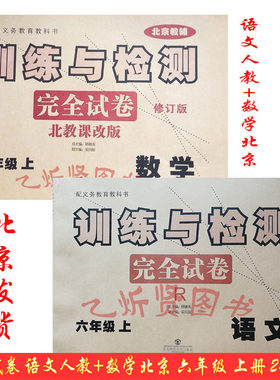 语文人教+数学北京
北京教辅
训练与检测
完全试卷
修订版
北教课改版
年级 上
数学
配义务教育教科书
训练与检测
完全试卷
R
六年级 上
语文
乙炘贤图书
乙炘贤图书
北京发货
试卷 语文人教+数学北京 六年级 上册2